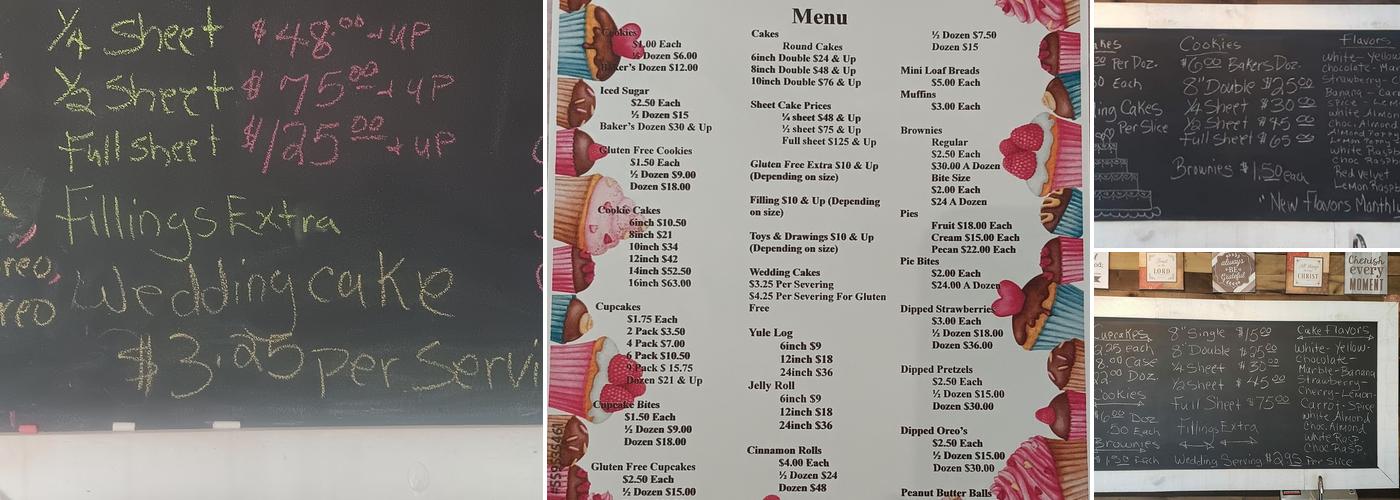 1/4 Sheet $48.00 → UP
1/2 Sheet $75.00 → UP
Full sheet $125.00 → UP
Fillings Extra
Wedding cake
$3.25 per Servi
oreo
oreo
Menu
Cookies
$1.00 Each
½ Dozen $6.00
Baker's Dozen $12.00
Iced Sugar
$2.50 Each
½ Dozen $15
Baker's Dozen $30 & Up
Gluten Free Cookies
$1.50 Each
½ Dozen $9.00
Dozen $18.00
Cookie Cakes
6inch $10.50
8inch $21
10inch $34
12inch $42
14inch $52.50
16inch $63.00
Cupcakes
$1.75 Each
2 Pack $3.50
4 Pack $7.00
6 Pack $10.50
9 Pack $ 15.75
Dozen $21 & Up
Cupcake Bites
$1.50 Each
½ Dozen $9.00
Dozen $18.00
Gluten Free Cupcakes
$2.50 Each
½ Dozen $15.00
#559533461
Cakes
Round Cakes
6inch Double $24 & Up
8inch Double $48 & Up
10inch Double $76 & Up
Sheet Cake Prices
¼ sheet $48 & Up
½ sheet $75 & Up
Full sheet $125 & Up
Gluten Free Extra $10 & Up
(Depending on size)
Filling $10 & Up (Depending
on size)
Toys & Drawings $10 & Up
(Depending on size)
Wedding Cakes
$3.25 Per Severing
$4.25 Per Severing For Gluten
Free
Yule Log
6inch $9
12inch $18
24inch $36
Jelly Roll
6inch $9
12inch $18
24inch $36
Cinnamon Rolls
$4.00 Each
½ Dozen $24
Dozen $48
½ Dozen $7.50
Dozen $15
Mini Loaf Breads
$5.00 Each
Muffins
$3.00 Each
Brownies
Regular
$2.50 Each
$30.00 A Dozen
Bite Size
$2.00 Each
$24 A Dozen
Pies
Fruit $18.00 Each
Cream $15.00 Each
Pecan $22.00 Each
Pie Bites
$2.00 Each
$24.00 A Dozen
Dipped Strawberries
$3.00 Each
½ Dozen $18.00
Dozen $36.00
Dipped Pretzels
$2.50 Each
½ Dozen $15.00
Dozen $30.00
Dipped Oreo's
$2.50 Each
½ Dozen $15.00
Dozen $30.00
Peanut Butter Balls
akes
Per Doz.
Each
ing Cakes
Per Slice
Cookies
$6.00 Bakers Doz.
8" Double $25.00
1/4 Sheet $30.00
1/2 Sheet $45.00
Full Sheet $65.00
Brownies $1.50 each
"New Flavors Monthly
Flavors
White-Yellow-
Chocolate-Mar
Strawberry-
Banana-Carr
Spice-Lemon
White Almond
Choc. Almond
White Rasp.
Choc. Rasp.
Red Velvet
Lemon Rasp.
LORD
always
BE
Grateful
CHRIST
Cherish
every
MOMENT
Cupcakes
2.25 each
8.00 Case
Doz.
Cookies
$6.00 Doz
.50 Each
Brownies
$1.50 Each
8" Single $15.00
8" Double $25.00
1/4 Sheet $30.00
1/2 Sheet $45.00
Full Sheet $75.00
Fillings Extra
Wedding Serving $2.95 Per Slice
Cake Flavors
White-Yellow-
Chocolate-
Marble-Banana
Strawberry-
Cherry-Lemon-
Carrot-Spice
White Almond
Choc. Almond
White Rasp.
Choc. Rasp.